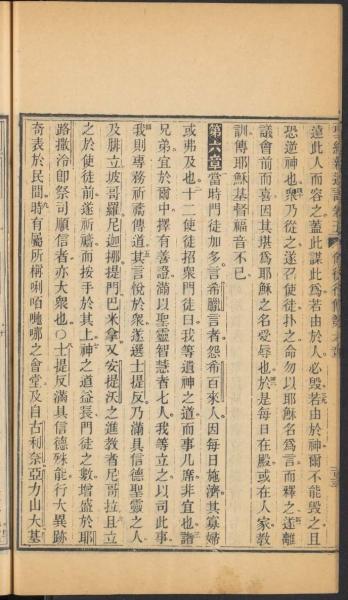 遠此人而容之蓋此謀此爲若由於人必毀若由於神爾不能毀之且
恐逆神也衆乃從之遂召使徒扑之命勿以耶穌名爲言而釋之遂離
議會前而喜因其堪爲耶穌之名受辱也於是每日在殿或在人家教
訓傳耶穌基督福音不已
第六章當時門徒加多言希臘言者怨希百來人因每日施濟其寡婦
或弗及也十二使徒招衆門徒曰我等遺神之道而事几席非宜也諸
兄弟宜於爾中擇有善證滿以聖靈智慧者七人我等立之以司此事
我則專務祈禱傳道其言悅於衆遂選士提反乃滿具信德聖靈之人
及腓立坡哥羅尼迦挪提門巴米拿又安提沃之進教者尼哥拉且立
之於使徒前遂祈禱而按手於其上神之道益長門徒之數增盛於耶
路撒冷即祭司順信者亦大衆也〇士提反滿具信德殊能行大異跡
奇表於民間時有屬所稱唎哂哋哪之會堂及自古利奈亞力山大基